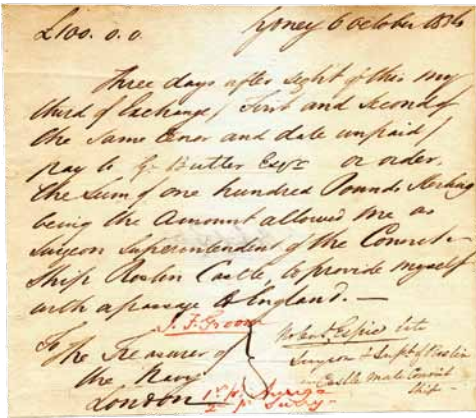 £100. 0. 0. Sydney 6 October 1836
Three days after sight of this my
third of Exchange / First and Second of
the same tenor and date unpaid /
pay to G. Butler Esqr or order,
the Sum of one hundred Pounds Sterling
being the Amount allowed me as
Surgeon Superintendent of the Convict
Ship Roslin Castle, to provide myself
with a passage to England. —
J. F. Groom
To
The Treasurer of
the Navy
London
Robert Espie late
Surgeon & Supt of Roslin
Castle male Convict
Ship
1st p.
2nd p.